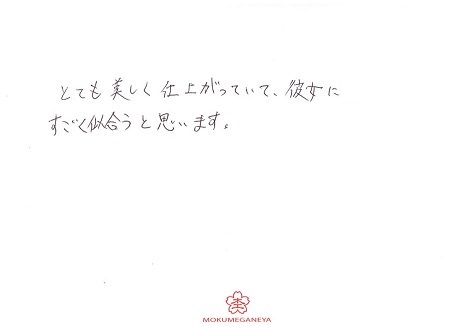 とても美しく仕上がっていて、彼女に
すごく似合うと思います。
MOKUMEGANEYA